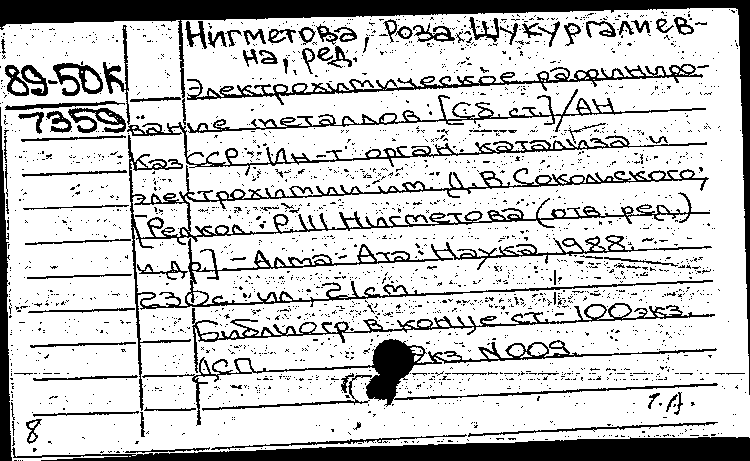 Нигметова, Роза Шукургалиев-
на, ред.
89-50К
7359
Электрохимическое рафиниро-
вание металлов: [Сб. ст.] / АН
КазССР, Ин-т орган. катализа и
электрохимии им. Д. В. Сокольского;
[Редкол.: Р. Ш. Нигметова (отв. ред.)
и др.] - Алма-Ата: Наука, 1988. -
230с.: ил.; 21см.
Библиогр. в конце ст. - 100экз.
ДСП. Экз. N009.
8.